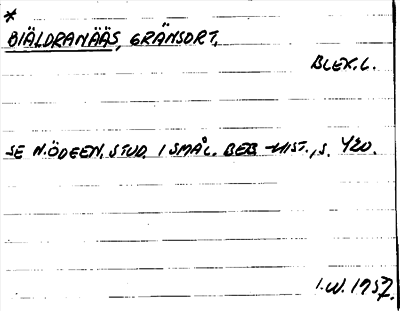 *
BIÄLDRANÄÄS, GRÄNSORT.
BLEK.L.
SE N.ÖDEEN, STUD. I SMÅL. BEB HIST., S. 420.
I.W. 1957.